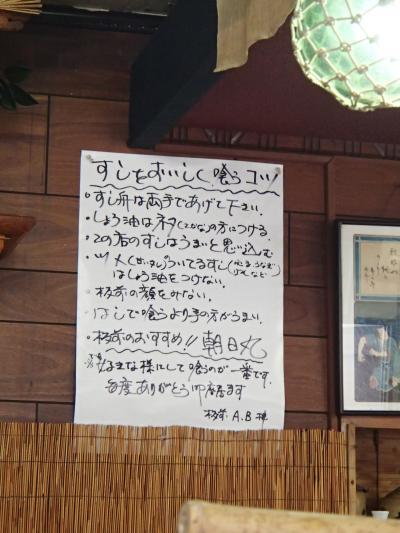 すしをおいしく喰うコツ
・すし舟は両手であげて下さい.
・しょう油はネタ(さかな)の方につける.
・この店のすしはうまいと思い込む
・ツメ(甘いタレ)ついてるすし(穴子うなぎ
はしょう油をつけない.
・板前の顔をみない.
・はしで喰うより手の方がうまい.
・板前のおすすめ!!朝日丸
好きな様にして喰うのが一番です.
毎度ありがとう御座居ます
板前 A.B